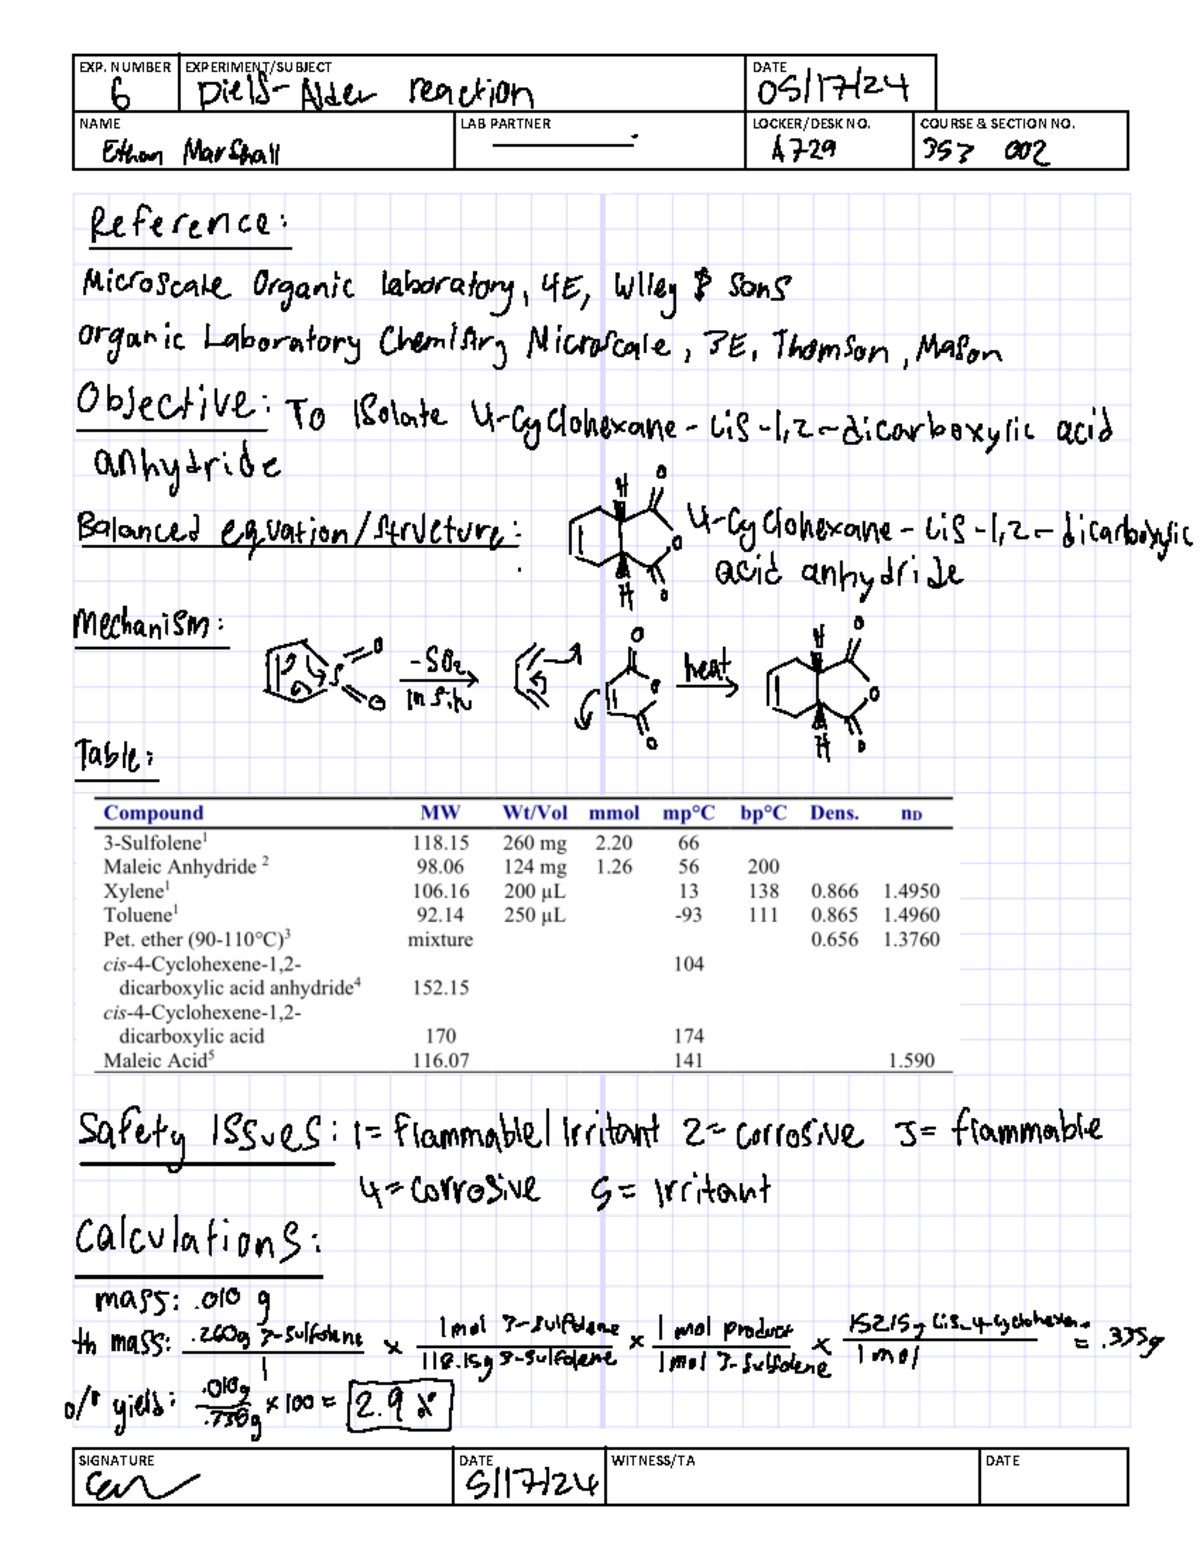 EXP. NUMBER EXPERIMENT/SUBJECT DATE
6 Diels-Alder reaction 05/17/24
NAME LAB PARTNER LOCKER/DESK NO. COURSE & SECTION NO.
Ethan Marshall — A729 353 002
Reference:
Microscale Organic laboratory, 4E, Wiley & Sons
Organic Laboratory Chemistry Microscale, 3E, Thomson, Mason
Objective: To Isolate 4-Cyclohexane-cis-1,2-dicarboxylic acid
anhydride
Balanced equation/structure: H O O O H 4-Cyclohexane-cis-1,2-dicarboxylic
acid anhydride
Mechanism:
S O O -SO2 in situ O O O heat H O O O H
Table:
Compound MW Wt/Vol mmol mp°C bp°C Dens. nD
3-Sulfolene1 118.15 260 mg 2.20 66
Maleic Anhydride 2 98.06 124 mg 1.26 56 200
Xylene1 106.16 200 µL 13 138 0.866 1.4950
Toluene1 92.14 250 µL -93 111 0.865 1.4960
Pet. ether (90-110°C)3 mixture 0.656 1.3760
cis-4-Cyclohexene-1,2- 104
dicarboxylic acid anhydride4 152.15
cis-4-Cyclohexene-1,2-
dicarboxylic acid 170 174
Maleic Acid5 116.07 141 1.590
Safety Issues: 1= Flammable/Irritant 2= corrosive 3= flammable
4= corrosive 5= Irritant
Calculations:
mass: .010 g
th mass: .260g 3-sulfolene / 1 × 1 mol 3-sulfolene / 118.15g 3-sulfolene × 1 mol product / 1 mol 3-sulfolene × 152.15g cis-4-cyclohexene / 1 mol = .335g
% yield: .010g / × 100 = 2.9 %
SIGNATURE DATE WITNESS/TA DATE
5/17/24